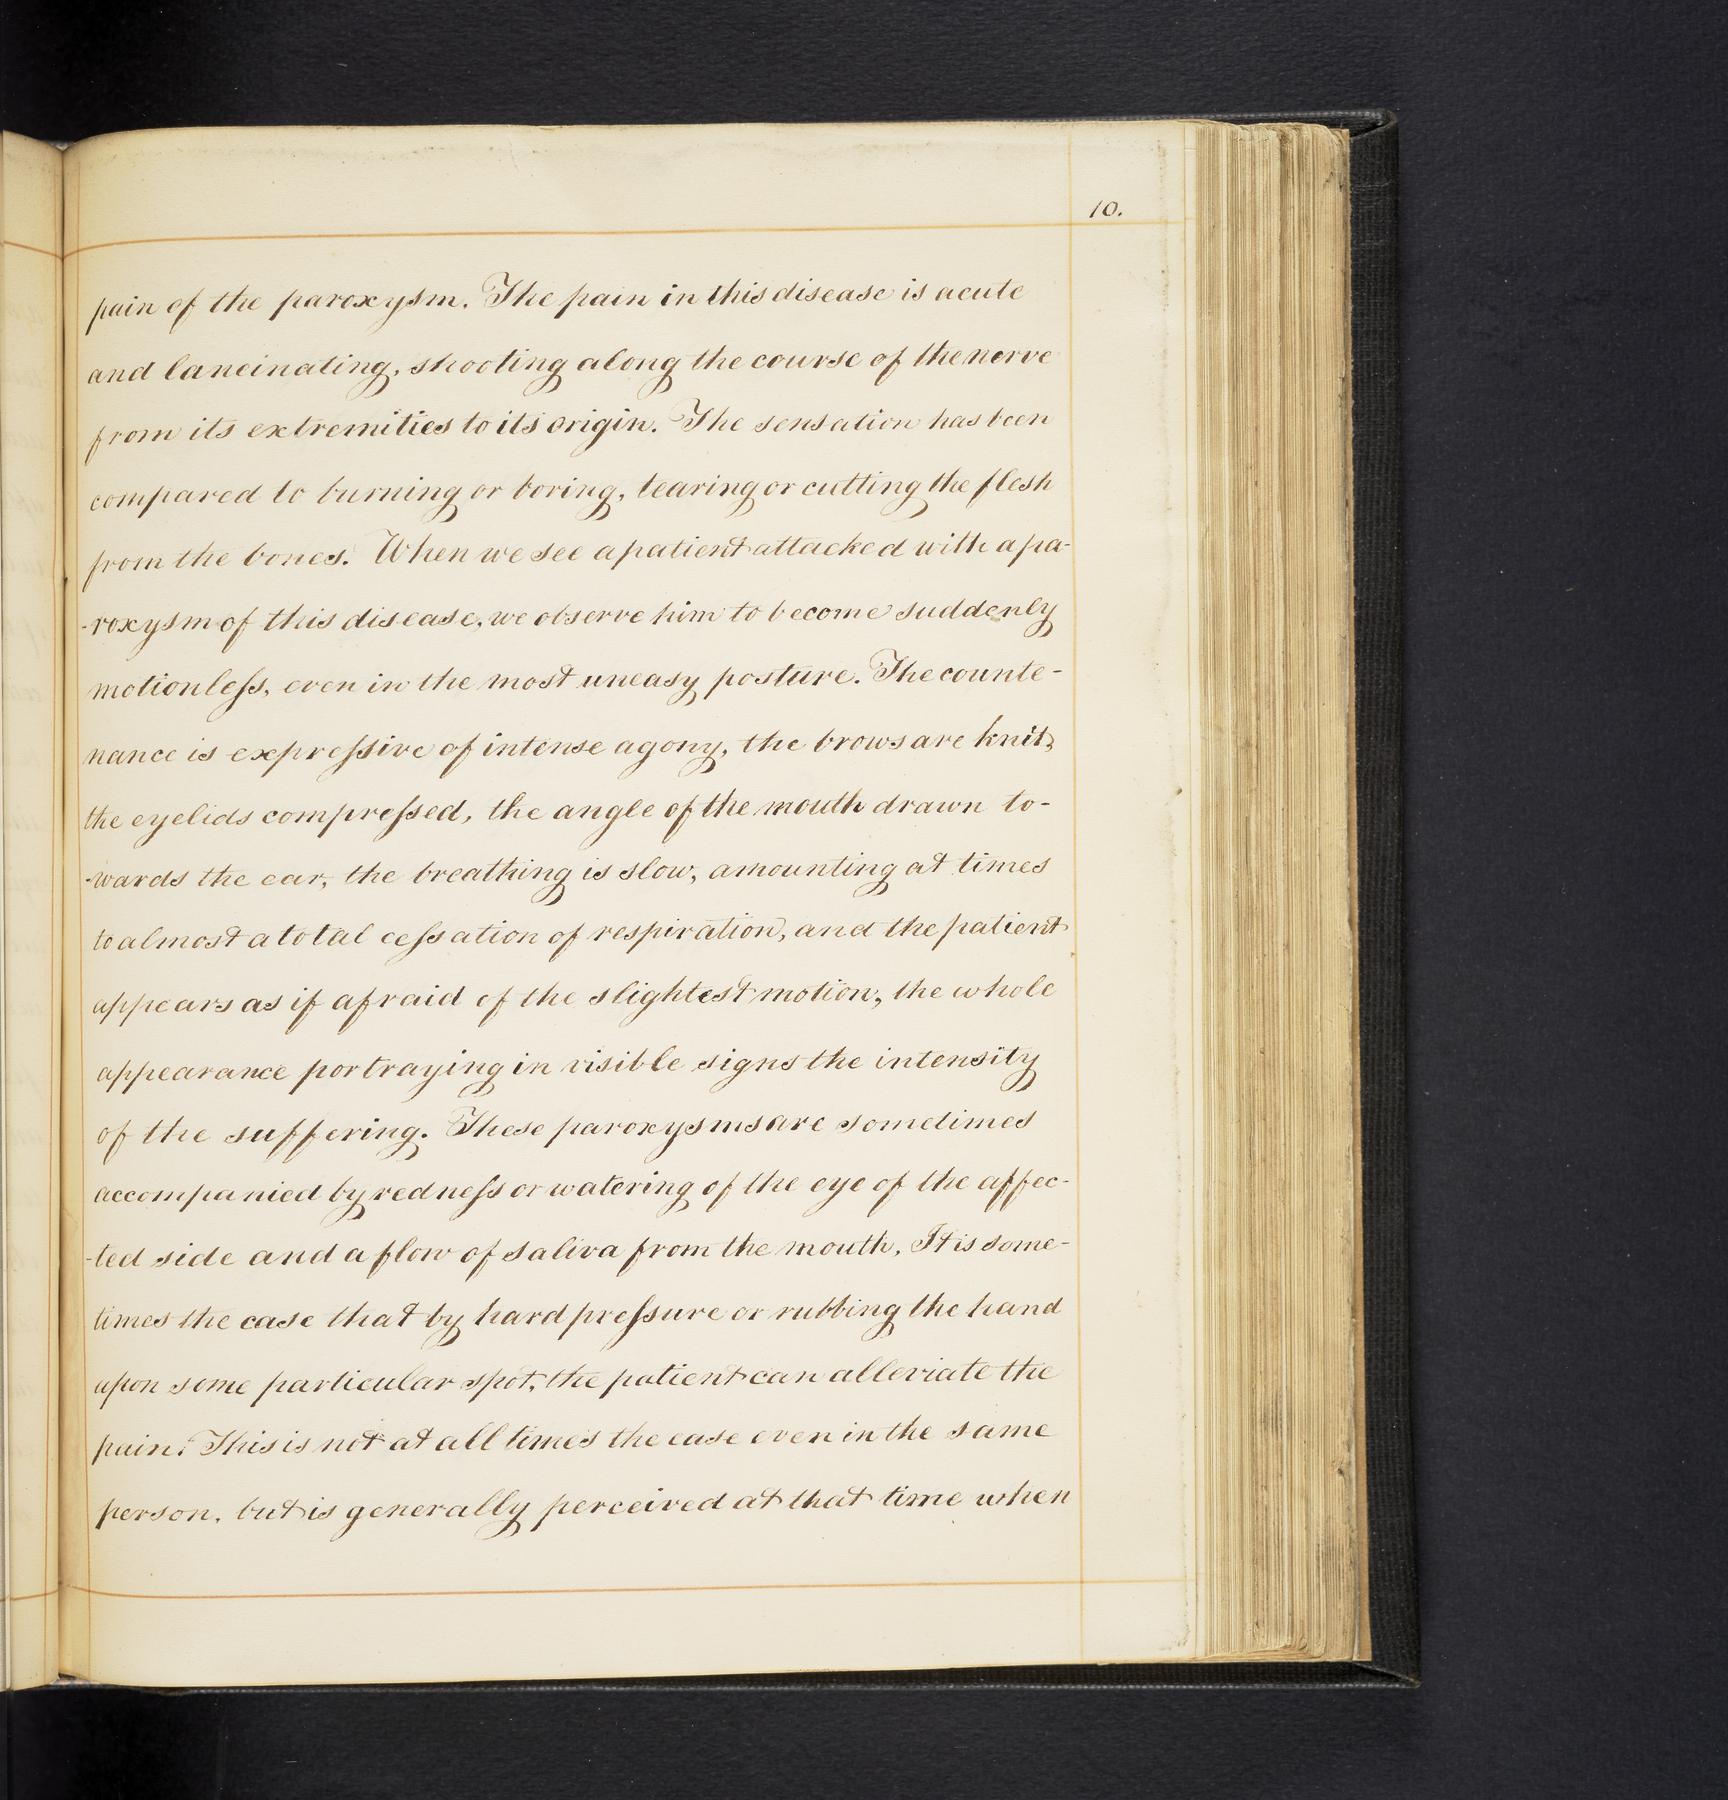 10.
pain of the paroxysm. The pain in this disease is acute
and lancinating, shooting along the course of the nerve
from its extremities to its origin. The sensation has been
compared to burning or boring, tearing or cutting the flesh
from the bones. When we see a patient attacked with a pa-
-roxysm of this disease, we observe him to become suddenly
motionleſs, even in the most uneasy posture. The counte-
nance is expreſsive of intense agony, the brows are knit,
the eyelids compreſsed, the angle of the mouth drawn to-
-wards the ear, the breathing is slow, amounting at times
to almost a total ceſsation of respiration, and the patient
appears as if afraid of the slightest motion, the whole
appearance portraying in visible signs the intensity
of the suffering. These paroxysms are sometimes
accompanied by redneſs or watering of the eye of the affec-
-ted side and a flow of saliva from the mouth. It is some-
times the case that by hard preſsure or rubbing the hand
upon some particular spot, the patient can alleviate the
pain. This is not at all times the case even in the same
person, but is generally perceived at that time when